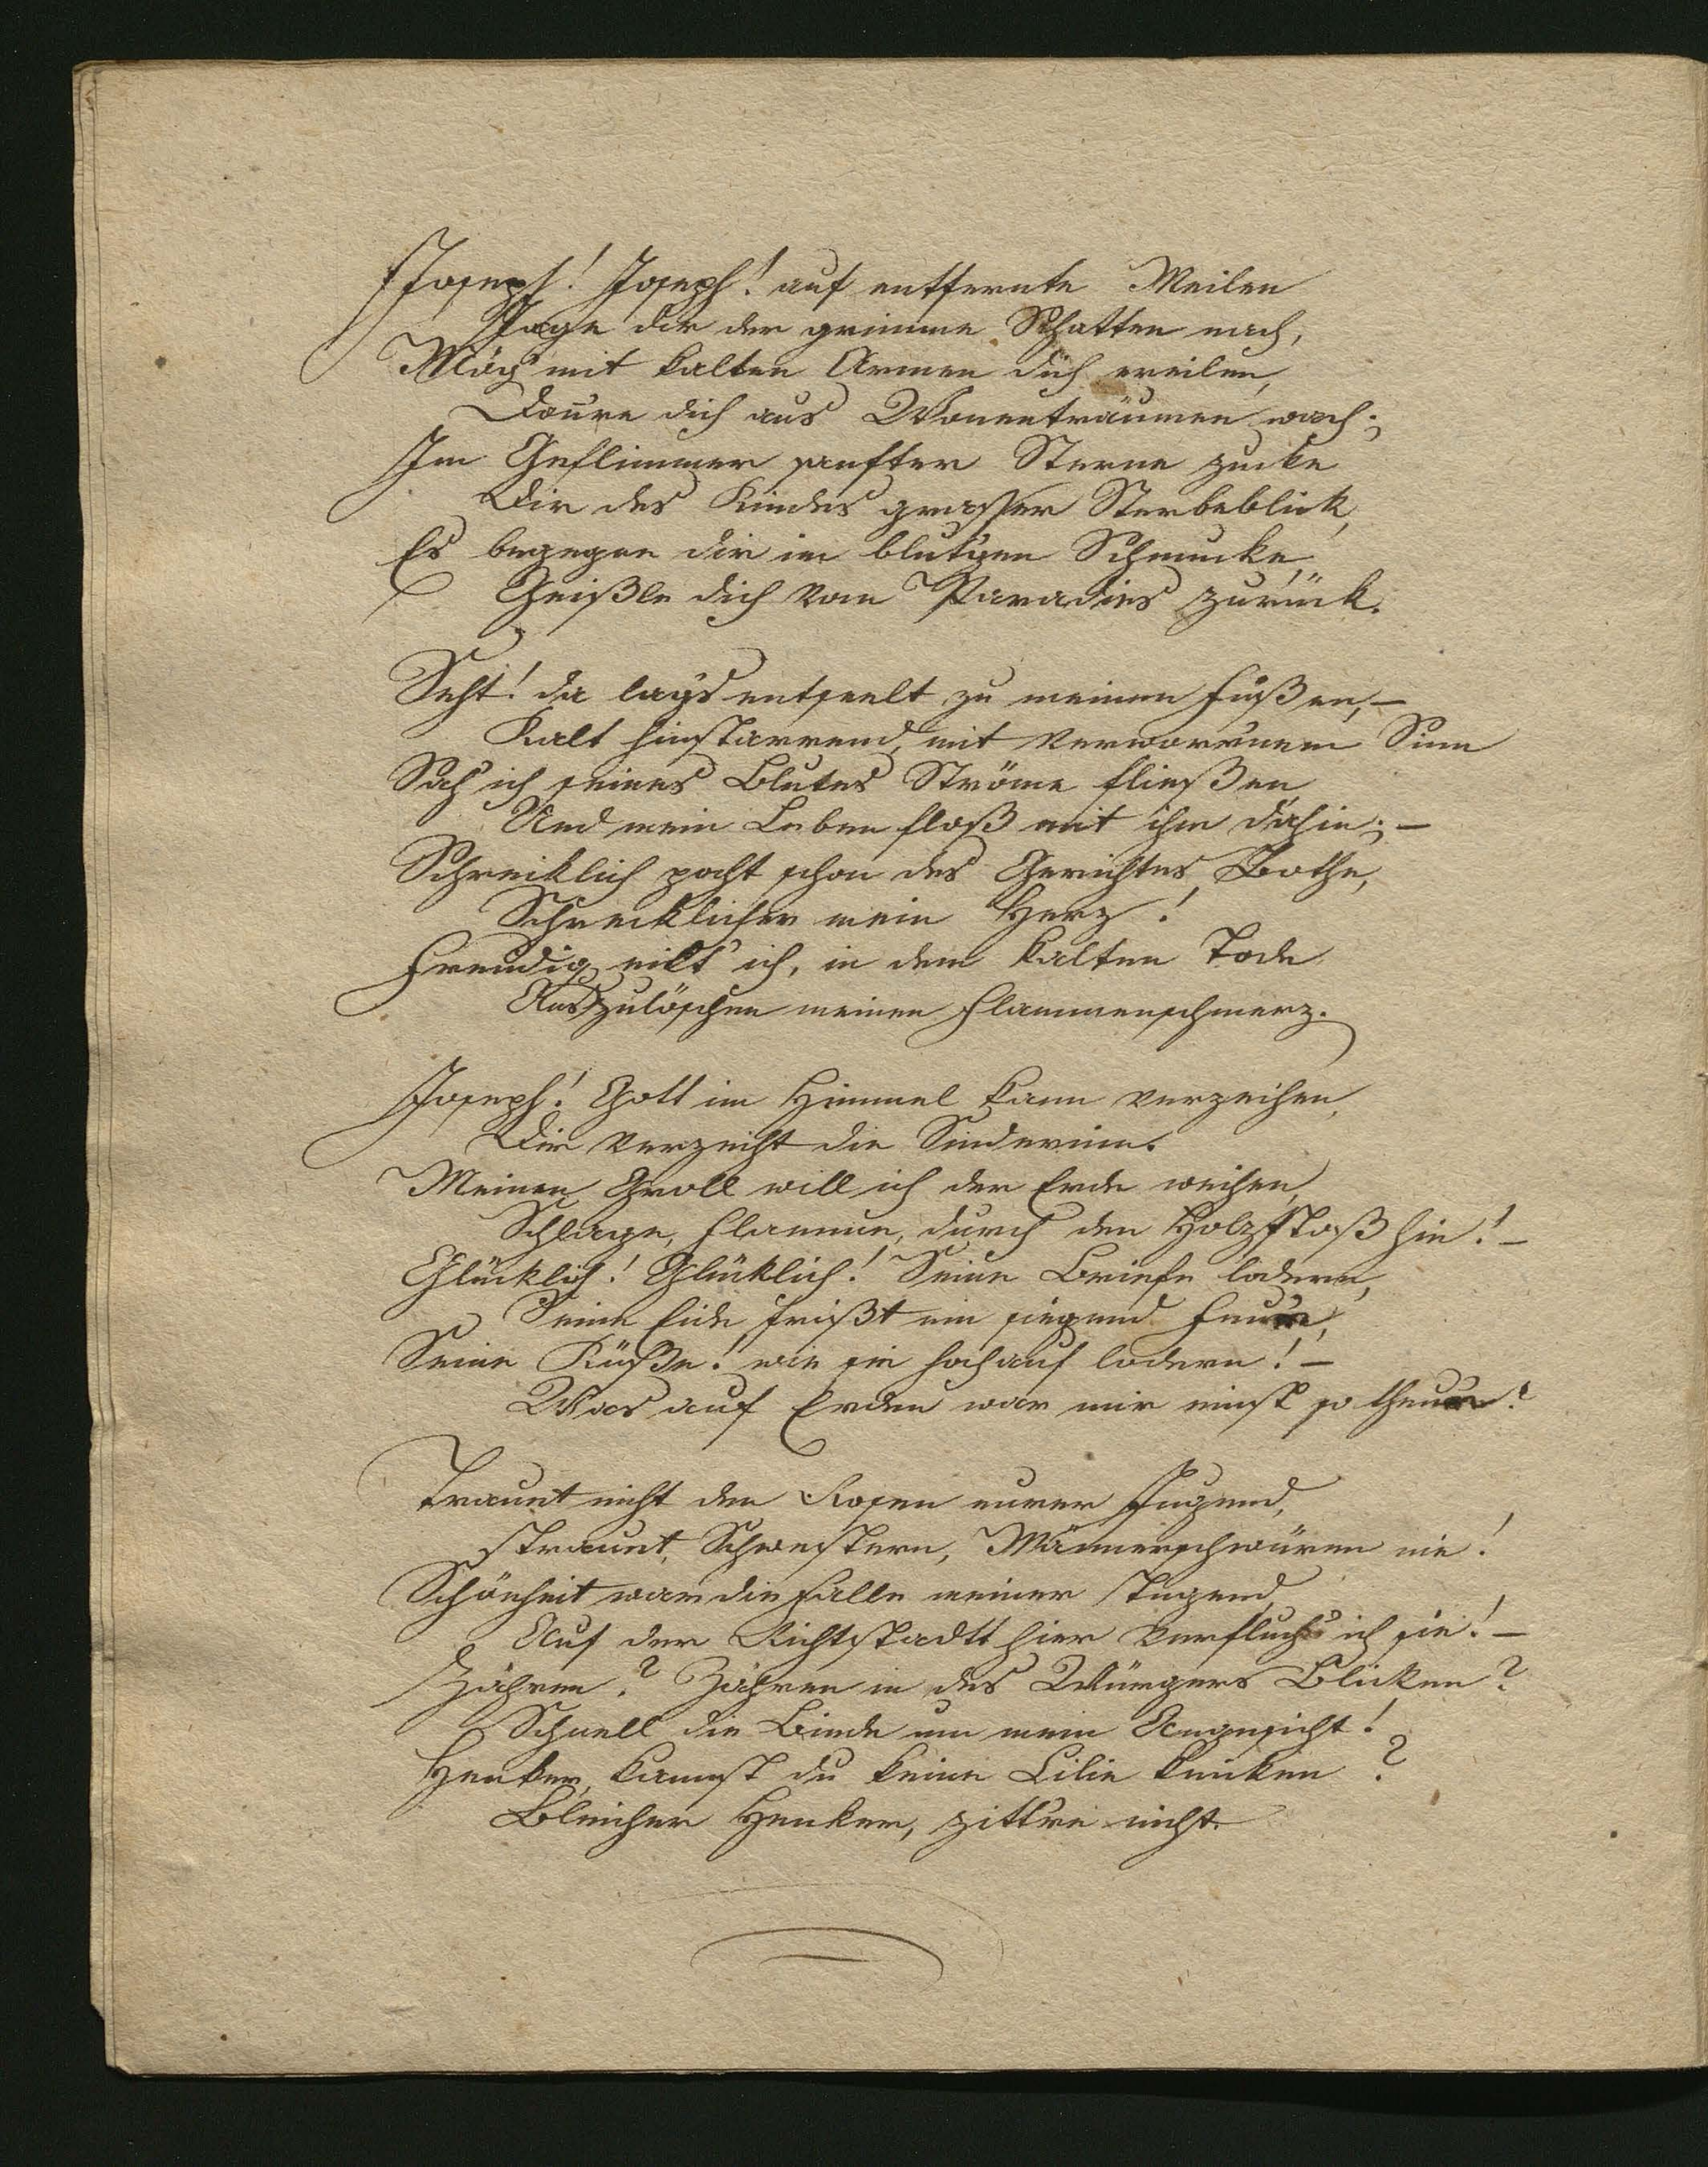 Joseph! Joseph! auf entfernte Meilen
Jage dir der grimme Schatten nach,
Mög' mit kalten Armen dich ereilen,
Donre dich aus Wonneträumen wach;
Im Geflimmer sanfter Sterne zucke
Dir des Kindes grasser Sterbeblick,
Es begegne dir im blutgen Schmucke,
Geißle dich vom Paradies zurück.
Seht! da lag's entseelt zu meinen Füßen, –
Kalt hinstarrend, mit verworrnem Sinn
Sah ich seines Blutes Ströme fließen
Und mein Leben floß mit ihm dahin; –
Schreklich pocht schon des Gerichtes Bothe,
Schrecklicher mein Herz!
Freudig eilt' ich, in dem kalten Tode
Auszulöschen meinen Flammenschmerz.
Joseph! Gott im Himmel kann verzeihen,
Dir verzeiht die Sünderinn.
Meinen Groll will ich der Erde weihen,
Schlage, Flamme, durch den Holzstoß hin! –
Glücklich! Glüklich! Seine Briefe lodern,
Seine Eide frißt ein siegend Feur,
Seine Küße! wie sie hochauf lodern! –
Was auf Erden war mir einst so theur?
Trauet nicht den Rosen eurer Jugend,
Trauet, Schwestern, Männerschwüren nie!
Schönheit war die Falle meiner Tugend,
Auf der Richtstadtt hier verfluch' ich sie! –
Zähren? Zähren in des Würgers Bliken?
Schnell die Binde um mein Angesicht!
Henker, kannst du keine Lilie kniken?
Bleicher Henker, zittre nicht.